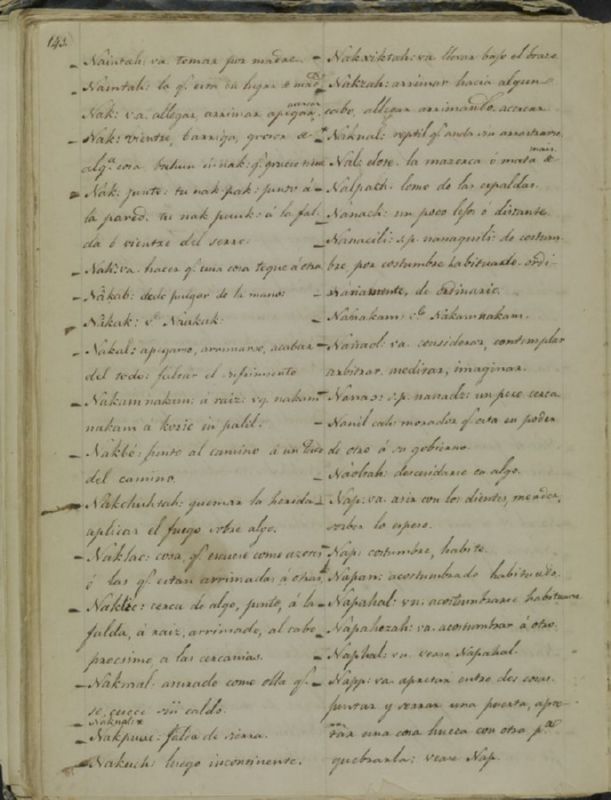 143.
Naintah: va. tomar por madre.
Naintah: la q.e esta en lugar de mad.e
Nak: va. allegar, arrimar apegar, acercar
Nak: vientre, barriga, grosor de
alg.a cosa. buhun u nak: q.e grueso tiene
Nak: junto: tu nak pak: junto á
la pared. tu nak puuk: á la fal-
da ó vientre del serro.
Nak: va. hacer q.e una cosa toque á otra
Nàkab: dedo pulgar de la mano:
Nàkak: v.e Naakak.
Nakal: apegarse, arrimarse, acabar
del todo: faltar el sufrimiento
Nakamnakam: á raiz: vg. nakam
nakam á kozic in palil.
Nakbé: junto al camino á un lado
del camino.
Nakchuhtah: quemar la herida
aplicar el fuego sobre algo.
Naklac: cosa, q.e
ó las q.e estan arrimadas á otras
Naklic: cerca de algo, junto, á la
falda, á raiz, arrimado, al cabo
procsimo, a las cercanias.
Nakmal: asurado como olla q.e
se cuece sin caldo.
Naknalix
Nakpuuc: falda de sierra.
Nakuch: luego incontinente.
Nakxiktah: va. llevar bajo el brazo.
Nakzah: arrimar hacia algun
cabo, allegar arrimando. acercar
Naknal: reptil q.e anda
Nal: elote. la mazorca ó mata de maiz.
Nalpach: lomo de las espaldas.
Nanach: un poco lejos ó distante
Nanacili: s.p. nanaquili: de costum-
bre por costumbre habituarse. ordi-
nariamente, de ordinario.
Nanakam: v.e Nakamnakam.
Nanaol: va. considerar, contemplar
arbitrar. meditar, imaginar.
un poco cerca
Nanil cah: morador q.e esta en poder
de otro ó su gobierno.
Náobah: descuidarse en algo.
Nap: va. asir con los dientes, morder,
sorber lo espeso.
Nap: costumbre, habito.
Napan: acostumbrado habituado.
Nàpahal: vn: acostumbrarse habituarse
Nàpahezah: va. acostumbrar á otro.
Naphal: va. vease Napahal.
Napp: va. apretar entre dos cosas
juntar y serrar una puerta, apre-
tar una cosa hueca con otra p.a
quebrarla: vease Nap.